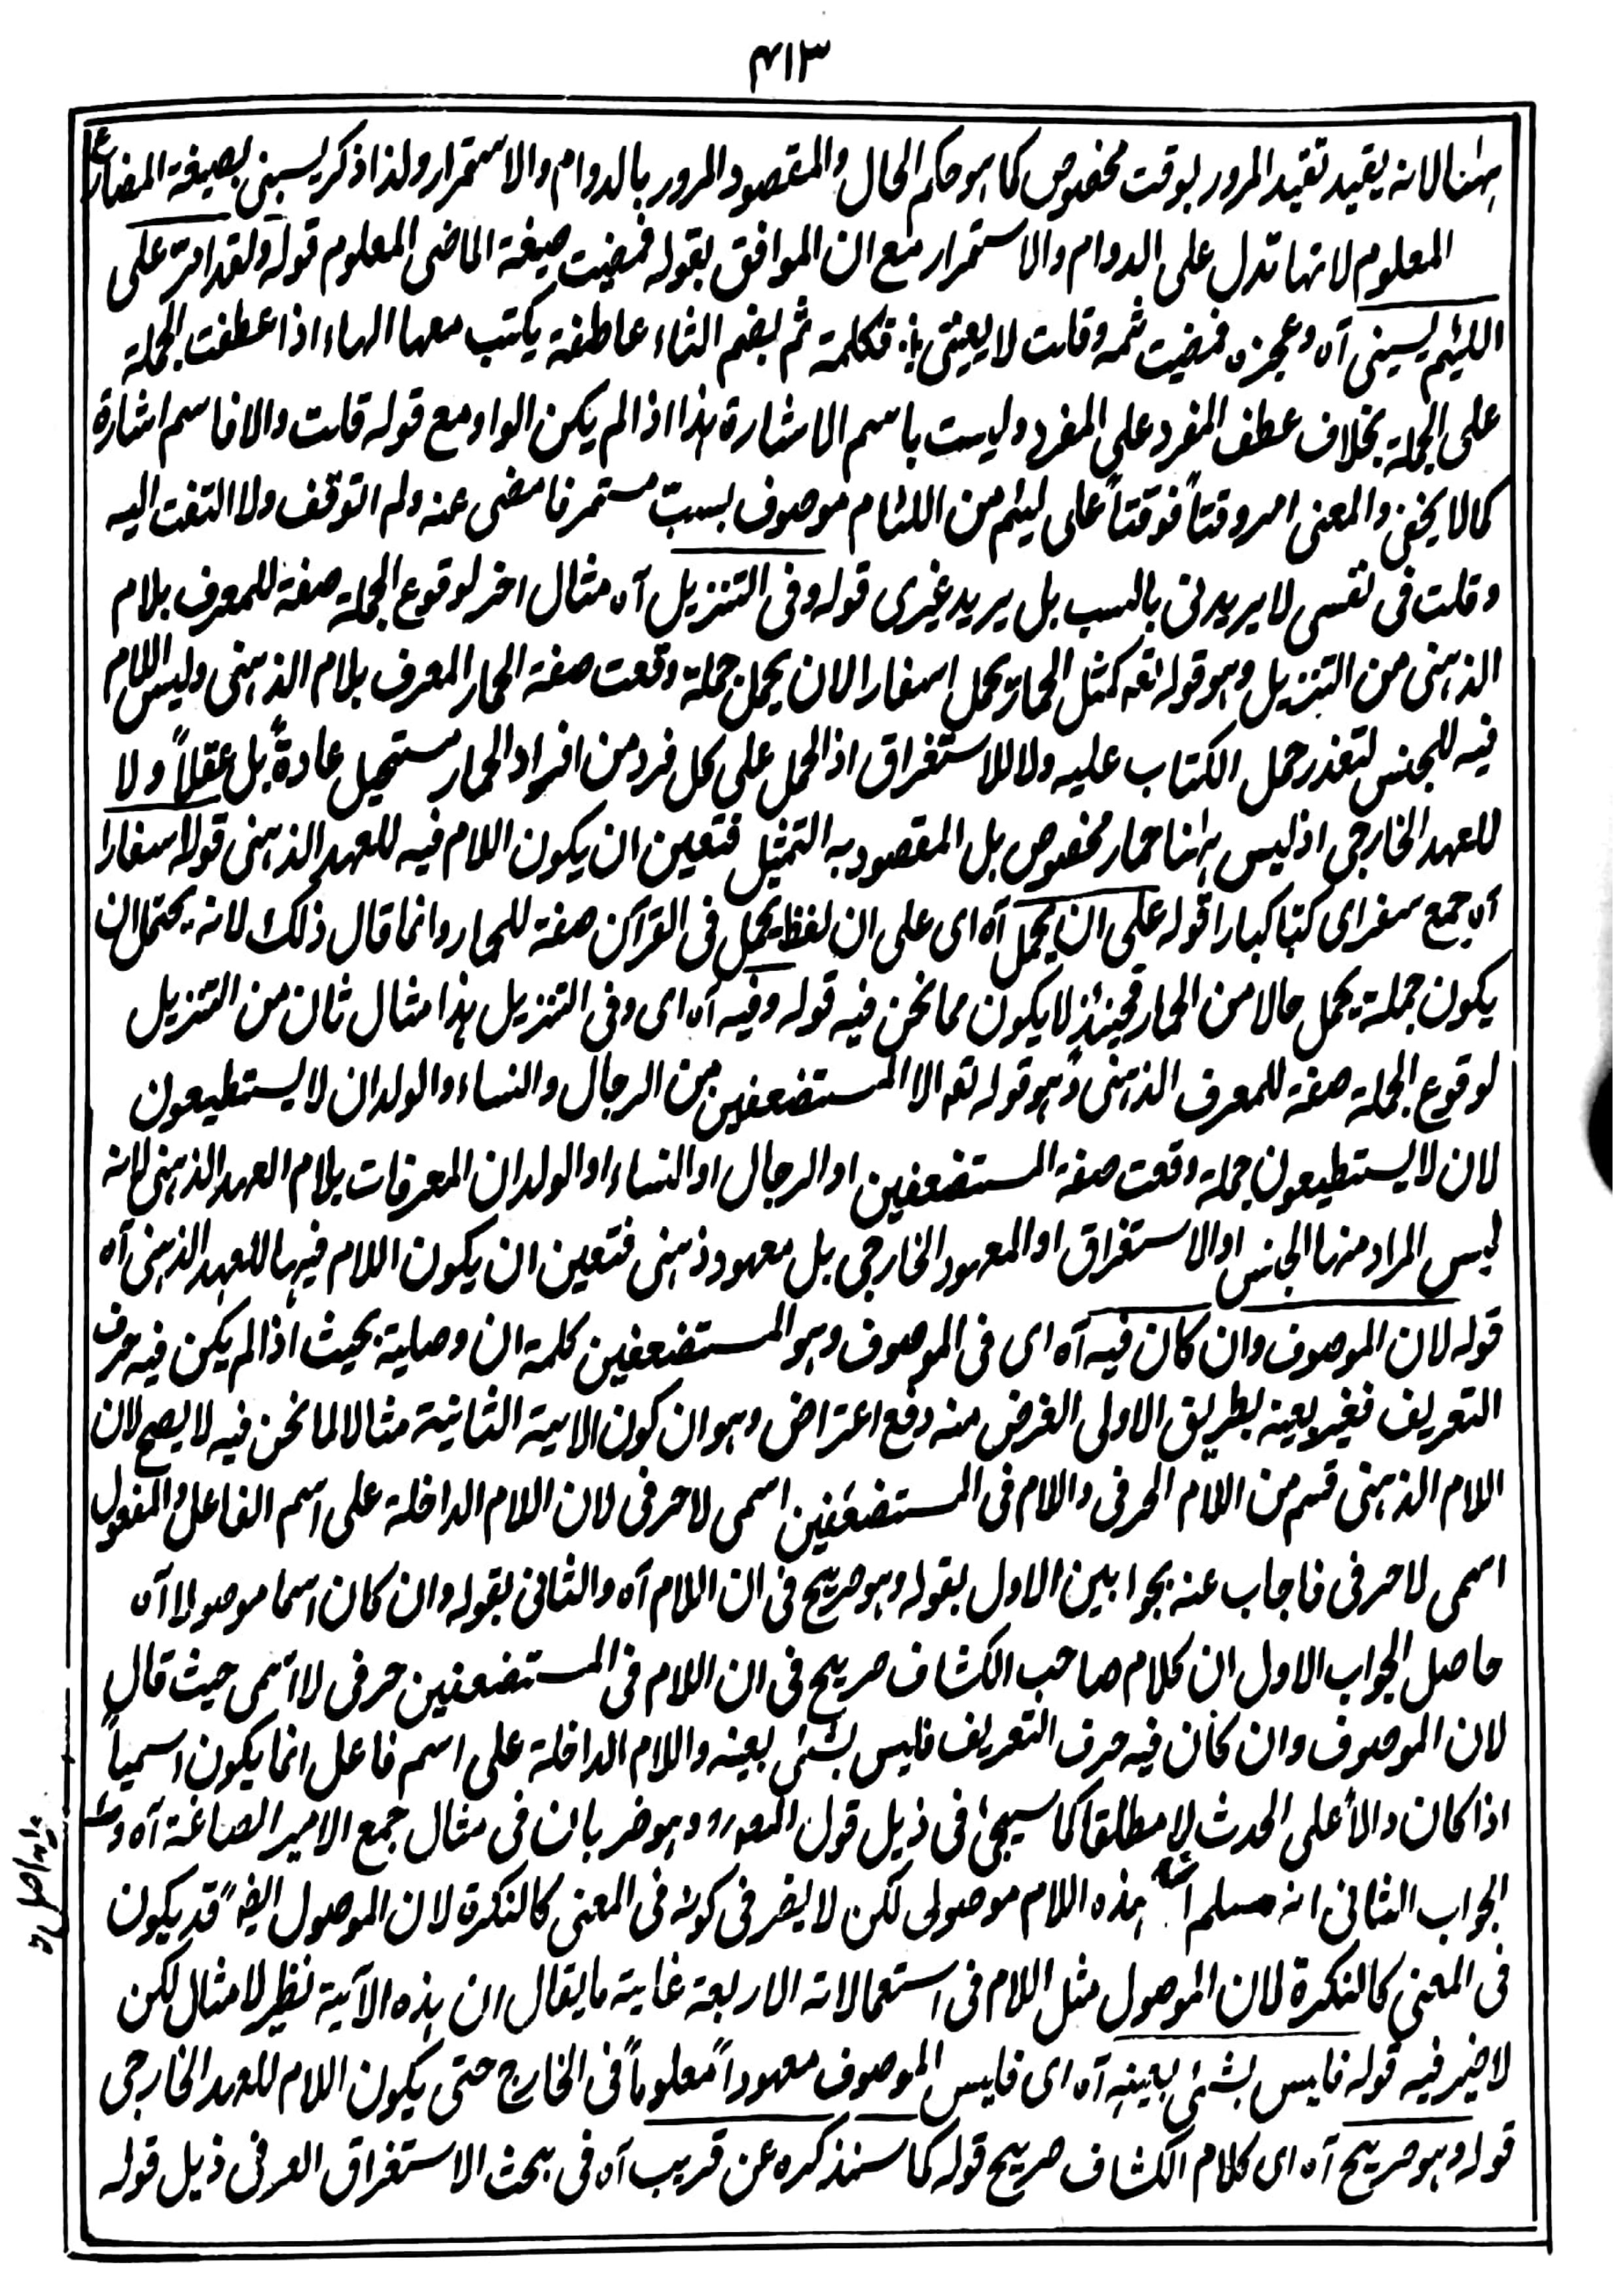 ۴۱۳
ہہنا لانہ یقید تقید المرور بوقت مخصوص کما ہو حکم الحال والمقصود المرور بالدوام والاستمرار ولذا ذکر یسبنی بصیغۃ المضارع
المعلوم لانہا تدل علی الدوام والاستمرار مع ان الموافق بقولہ فمضیت صیغۃ الماضی المعلوم قولہ ولقد امر علی
اللئیم یسبنی آہ وعجزہ فمضیت ثمہ وقلت لا یعنینی فکلمۃ ثم بضم الثاء عاطفۃ یکتب معہا الہاء اذا عطفت الجملۃ
علی الجملۃ بخلاف عطف المفرد علی المفرد ولیست باسم الاشارۃ ہذا اذا لم یکن الواو مع قولہ قلت والا فاسم اشارۃ
کما لا یخفی والمعنی امر وقتاً فوقتاً علی لئیم من اللئام موصوف بسبّ مستمر فامضی عنہ ولم اتوقف ولا التفت الیہ
وقلت فی نفسی لا یریدنی بالسب بل یرید غیری قولہ وفی التنزیل آہ مثال اخر لوقوع الجملۃ صفۃ للمعرف بلام
الذہنی من التنزیل وہو قولہ تعہ کمثل الحمار یحمل اسفارا لان یحمل جملۃ وقعت صفۃ الحمار المعرف بلام الذہنی ولیس اللام
فیہ للجنس لتعذر حمل الکتاب علیہ ولا للاستغراق اذ الحمل علی کل فرد من افراد الحمار مستحیل عادۃً بل عقلاً ولا
للعہد الخارجی اذ لیس ہہنا حمار مخصوص بل المقصود بہ التمثیل فتعین ان یکون اللام فیہ للعہد الذہنی قولہ اسفارا
آہ جمع سفر ای کتبا کبارا قولہ علی ان یحمل آہ ای علی ان لفظ یحمل فی القرآن صفۃ للحمار وانما قال ذلک لانہ یحتمل ان
یکون جملۃ یحمل حالا من الحمار فحینئذ لا یکون مما نحن فیہ قولہ وفیہ آہ ای وفی التنزیل ہذا مثال ثان من التنزیل
لوقوع الجملۃ صفۃ للمعرف الذہنی وہو قولہ تعہ الا المستضعفین من الرجال والنساء والولدان لا یستطیعون
لان لا یستطیعون جملۃ وقعت صفۃ المستضعفین او الرجال او النساء او الولدان المعرفات بلام العہد الذہنی لانہ
لیس المراد منہا الجنس او الاستغراق او المعہود الخارجی بل معہود ذہنی فتعین ان یکون اللام فیہا للعہد الذہنی آہ
قولہ لان الموصوف وان کان فیہ آہ ای فی الموصوف وہو المستضعفین کلمۃ ان وصلیۃ بحیث اذا لم یکن فیہ حرف
التعریف فغیر بعینہ بطریق الاولی الغرض منہ دفع اعتراض وہو ان کون الایۃ الثانیۃ مثالا لما نحن فیہ لا یصح لان
اللام الذہنی قسم من اللام الحرفی واللام فی المستضعفین اسمی لا حرفی لان اللام الداخلۃ علی اسم الفاعل والمفعول
اسمی لا حرفی فاجاب عنہ بجوابین الاول بقولہ وہو صریح فی ان اللام آہ والثانی بقولہ وان کان اسما موصولا آہ
حاصل الجواب الاول ان کلام صاحب الکشاف صریح فی ان اللام فی المستضعفین حرفی لا اسمی حیث قال
لان الموصوف وان کان فیہ حرف التعریف فلیس بشئ بعینہ واللام الداخلۃ علی اسم فاعل انما یکون اسمیاً
اذا کان دالا علی الحدث لا مطلقا کما سیجئ فی ذیل قول المصرہ وہو ضربان فی مثال جمع الامیر الصاغۃ آہ
الجواب الثانی انہ مسلم ہذہ اللام موصولی لکن لا یضر فی کونہ فی المعنی کالنکرۃ لان الموصول ایضً قد یکون
فی المعنی کالنکرۃ لان الموصول مثل اللام فی استعمالاتہ الاربعۃ غایۃ ما یقال ان ہذہ الآیۃ نظیر لا مثال لکن
لا ضیر فیہ قولہ فلیس بشئ بعینہ آہ ای فلیس الموصوف معہوداً معلوماً فی الخارج حتی یکون اللام للعہد الخارجی
قولہ وہو صریح آہ ای کلام الکشاف صریح قولہ کما سنذکرہ عن قریب آہ فی بحث الاستغراق العرفی ذیل قولہ